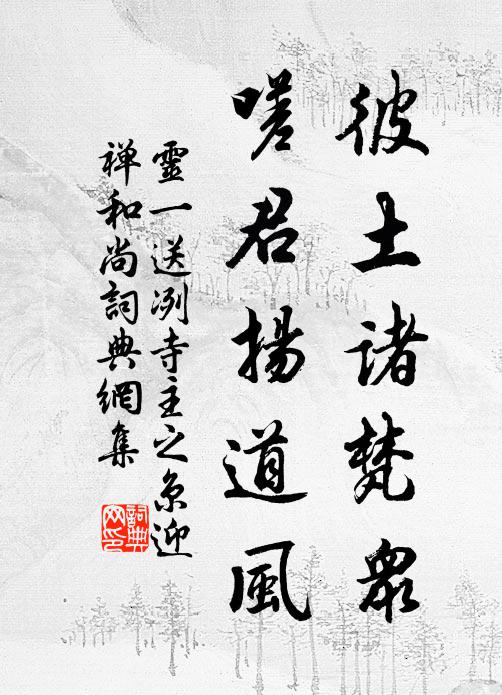 彼土诸梵眾
嗟君揚道風
靈一送冽寺主之京迎
禅和尚詞典網集
詞典网印